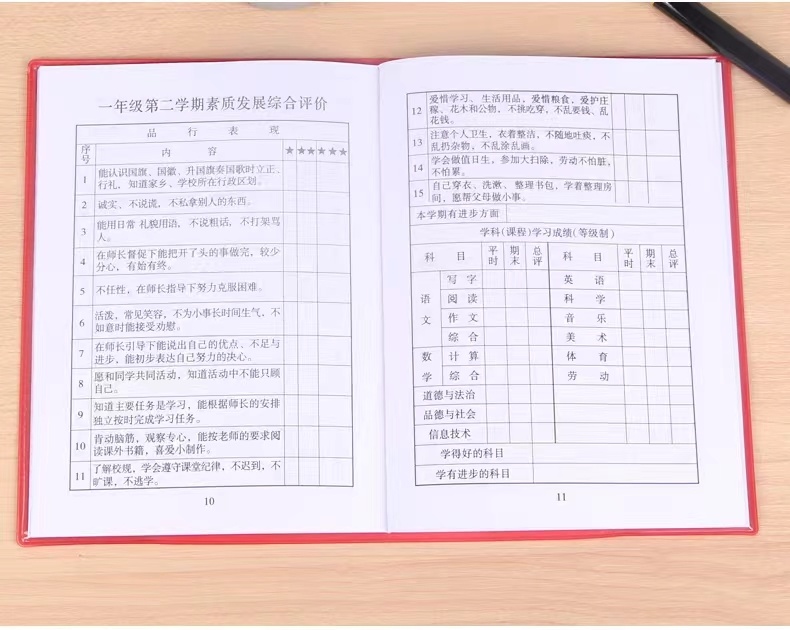 一年级第二学期素质发展综合评价
品 行 表 现
序号 内 容 ★★★★★★
1 能认识国旗、国徽、升国旗奏国歌时立正、
行礼，知道家乡、学校所在行政区划。
2 诚实、不说谎，不私拿别人的东西。
3 能用日常 礼貌用语， 不说粗话， 不打架骂
人。
4 在师长督促下能把开了头的事做完，较少
分心，有始有终。
5 不任性，在师长指导下努力克服困难。
6 活泼，常见笑容，不为小事长时间生气，不
如意时能接受劝慰。
7 在师长引导下能说出自己的优点、不足与
进步，能初步表达自己努力的决心。
8 愿和同学共同活动，知道活动中不能只顾
自己。
9 知道主要任务是学习，能根据师长的安排
独立按时完成学习任务。
10 肯动脑筋，观察专心，能按老师的要求阅
读课外书籍，喜爱小制作。
11 了解校规，学会遵守课堂纪律，不迟到，不
旷课，不逃学。
10
12 爱惜学习、 生活用品，爱惜粮食，爱护庄
稼、花木和公物，不挑吃穿，不乱要钱、乱
花钱。
13 注意个人卫生，衣着整洁，不随地吐痰，不
乱扔杂物，不乱涂乱画。
14 学会做值日生，参加大扫除，劳动不怕脏，
不怕累。
15 自己穿衣、洗漱、 整理书包，学着整理房
间，愿帮父母做小事。
本学期有进步方面
学科(课程)学习成绩(等级制)
科 目 平时 期末 总评 科 目 平时 期末 总评
语文 写 字 英 语
阅 读 科 学
作 文 音 乐
综 合 美 术
数学 计 算 体 育
综 合 劳 动
道德与法治
品德与社会
信息技术
学得好的科目
学有进步的科目
11